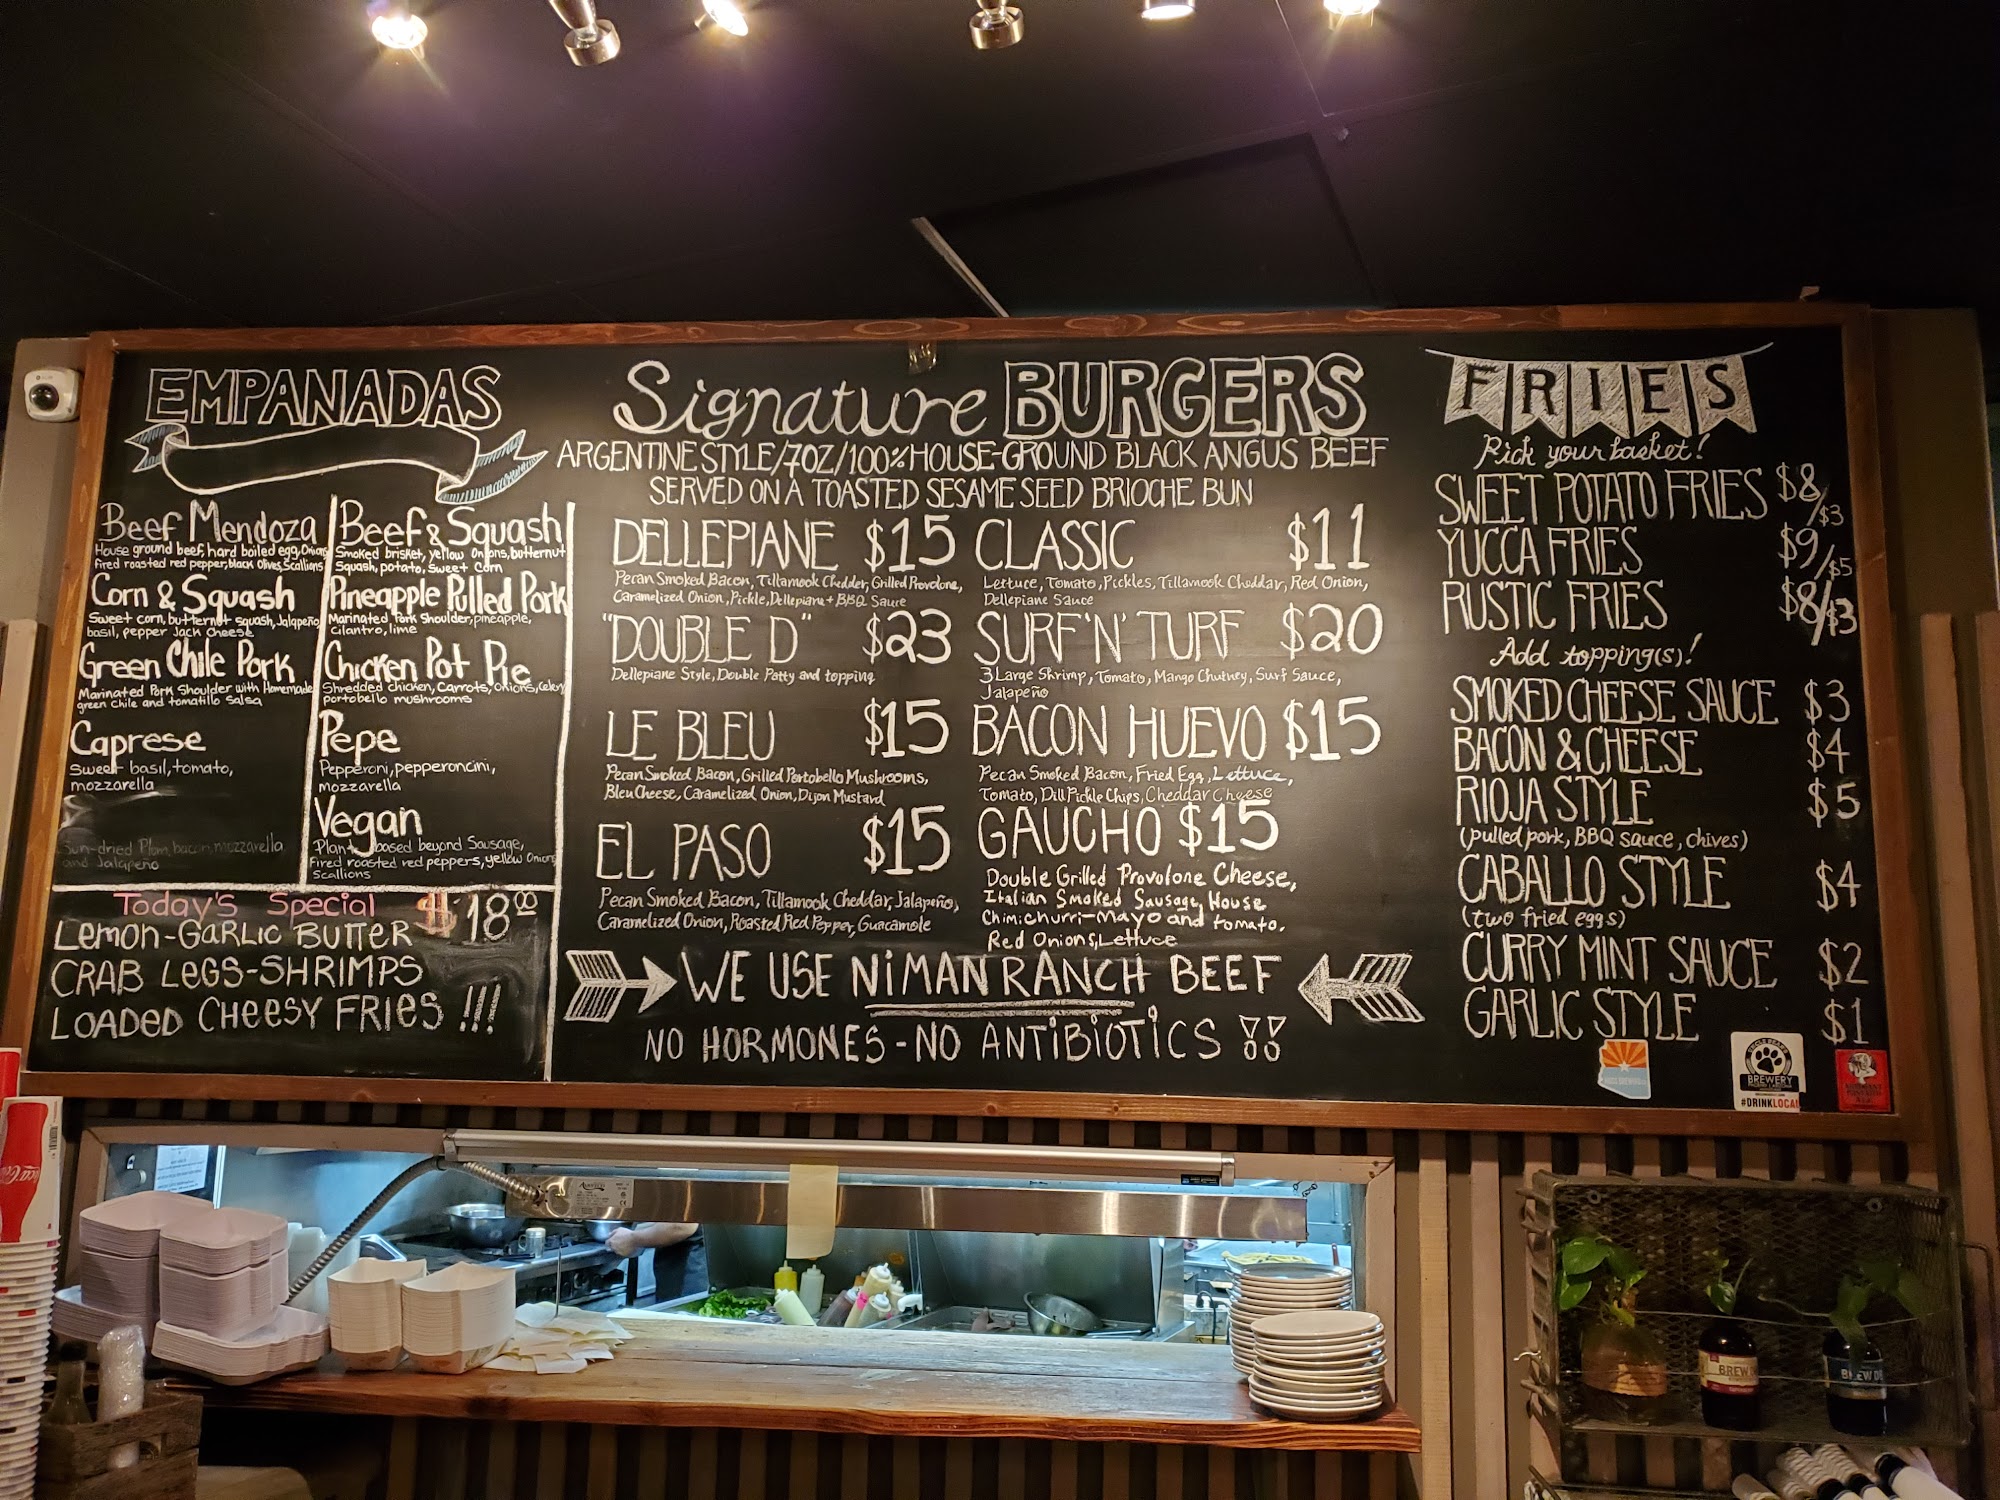 EMPANADAS
Beef Mendoza
House ground beef, hard boiled egg, Onions
fired roasted red pepper, black Olives, Scallions
Corn & Squash
Sweet corn, butternut squash, Jalapeño,
basil, pepper Jack Cheese
Green Chile Pork
Marinated Pork Shoulder with Homemade
green chile and tomatillo Salsa
Caprese
Sweet basil, tomato,
mozzarella
Sun-dried Plum, bacon, mozzarella
and Jalapeño
Beef & Squash
Smoked brisket, yellow Onions, butternut
Squash, potato, Sweet Corn
Pineapple Pulled Pork
Marinated Pork Shoulder, pineapple,
cilantro, lime
Chicken Pot Pie
Shredded chicken, Carrots, onions, Celery
portobello mushrooms
Pepe
Pepperoni, pepperoncini,
mozzarella
Vegan
Plant based beyond Sausage,
Fired roasted red peppers, yellow Onions
Scallions
Today's Special $18.00
LEMON-GARLIC BUTTER
CRAB LEGS-SHRIMPS
LOADED CHEESY FRIES !!!
Signature BURGERS
ARGENTINE STYLE/7OZ/100% HOUSE-GROUND BLACK ANGUS BEEF
SERVED ON A TOASTED SESAME SEED BRIOCHE BUN
DELLEPIANE $15
Pecan Smoked Bacon, Tillamook Chedder, Grilled Provolone,
Caramelized Onion, Pickle, Dellepiane + BBQ Sauce
"DOUBLE D" $23
Dellepiane Style, Double Patty and topping
LE BLEU $15
Pecan Smoked Bacon, Grilled Portobello Mushrooms,
Bleu Cheese, Caramelized Onion, Dijon Mustard
EL PASO $15
Pecan Smoked Bacon, Tillamook Cheddar, Jalapeño,
Caramelized Onion, Roasted Red Pepper, Guacamole
CLASSIC $11
Lettuce, Tomato, Pickles, Tillamook Cheddar, Red Onion,
Dellepiane Sauce
SURF 'N' TURF $20
3 Large Shrimp, Tomato, Mango Chutney, Surf Sauce,
Jalapeño
BACON HUEVO $15
Pecan Smoked Bacon, Fried Egg, Lettuce,
Tomato, Dill Pickle Chips, Cheddar Cheese
GAUCHO $15
Double Grilled Provolone Cheese,
Italian Smoked Sausage, House
Chimichurri-Mayo and tomato.
Red Onions, Lettuce
WE USE NIMAN RANCH BEEF
NO HORMONES - NO ANTIBIOTICS !!
FRIES
Pick your basket!
SWEET POTATO FRIES $8/$3
YUCCA FRIES $9/$5
RUSTIC FRIES $8/$3
Add topping(s)!
SMOKED CHEESE SAUCE $3
BACON & CHEESE $4
RIOJA STYLE $5
(pulled pork, BBQ sauce, chives)
CABALLO STYLE $4
(two fried eggs)
CURRY MINT SAUCE $2
GARLIC STYLE $1
BREWERY
#DRINKLOCAL